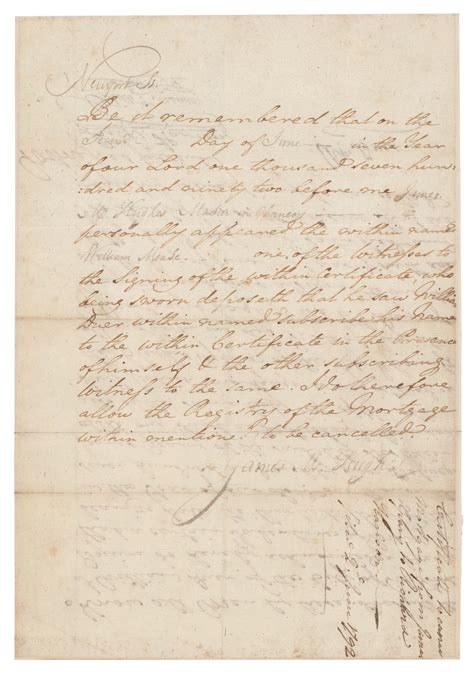 Newyork Ss.
Be it remembered that on the
Day of June in the Year
of our Lord one thousand seven hun-
dred and ninety two before me James
M. Hughes Master in Chancery
personally appeared the within named
William Meade one of the witnesses to
the Signing of the within Certificate, who
being sworn deposeth that he saw William
Duer within named subscribe his Name
to the within Certificate in the Presence
of himself & the other subscribing
Witness to the same. I do therefore
allow the Registry of the Mortgage
within mention'd to be cancelled.
James M. Hughes
Certificate to cancel
Mortgage from James
to
June 1792